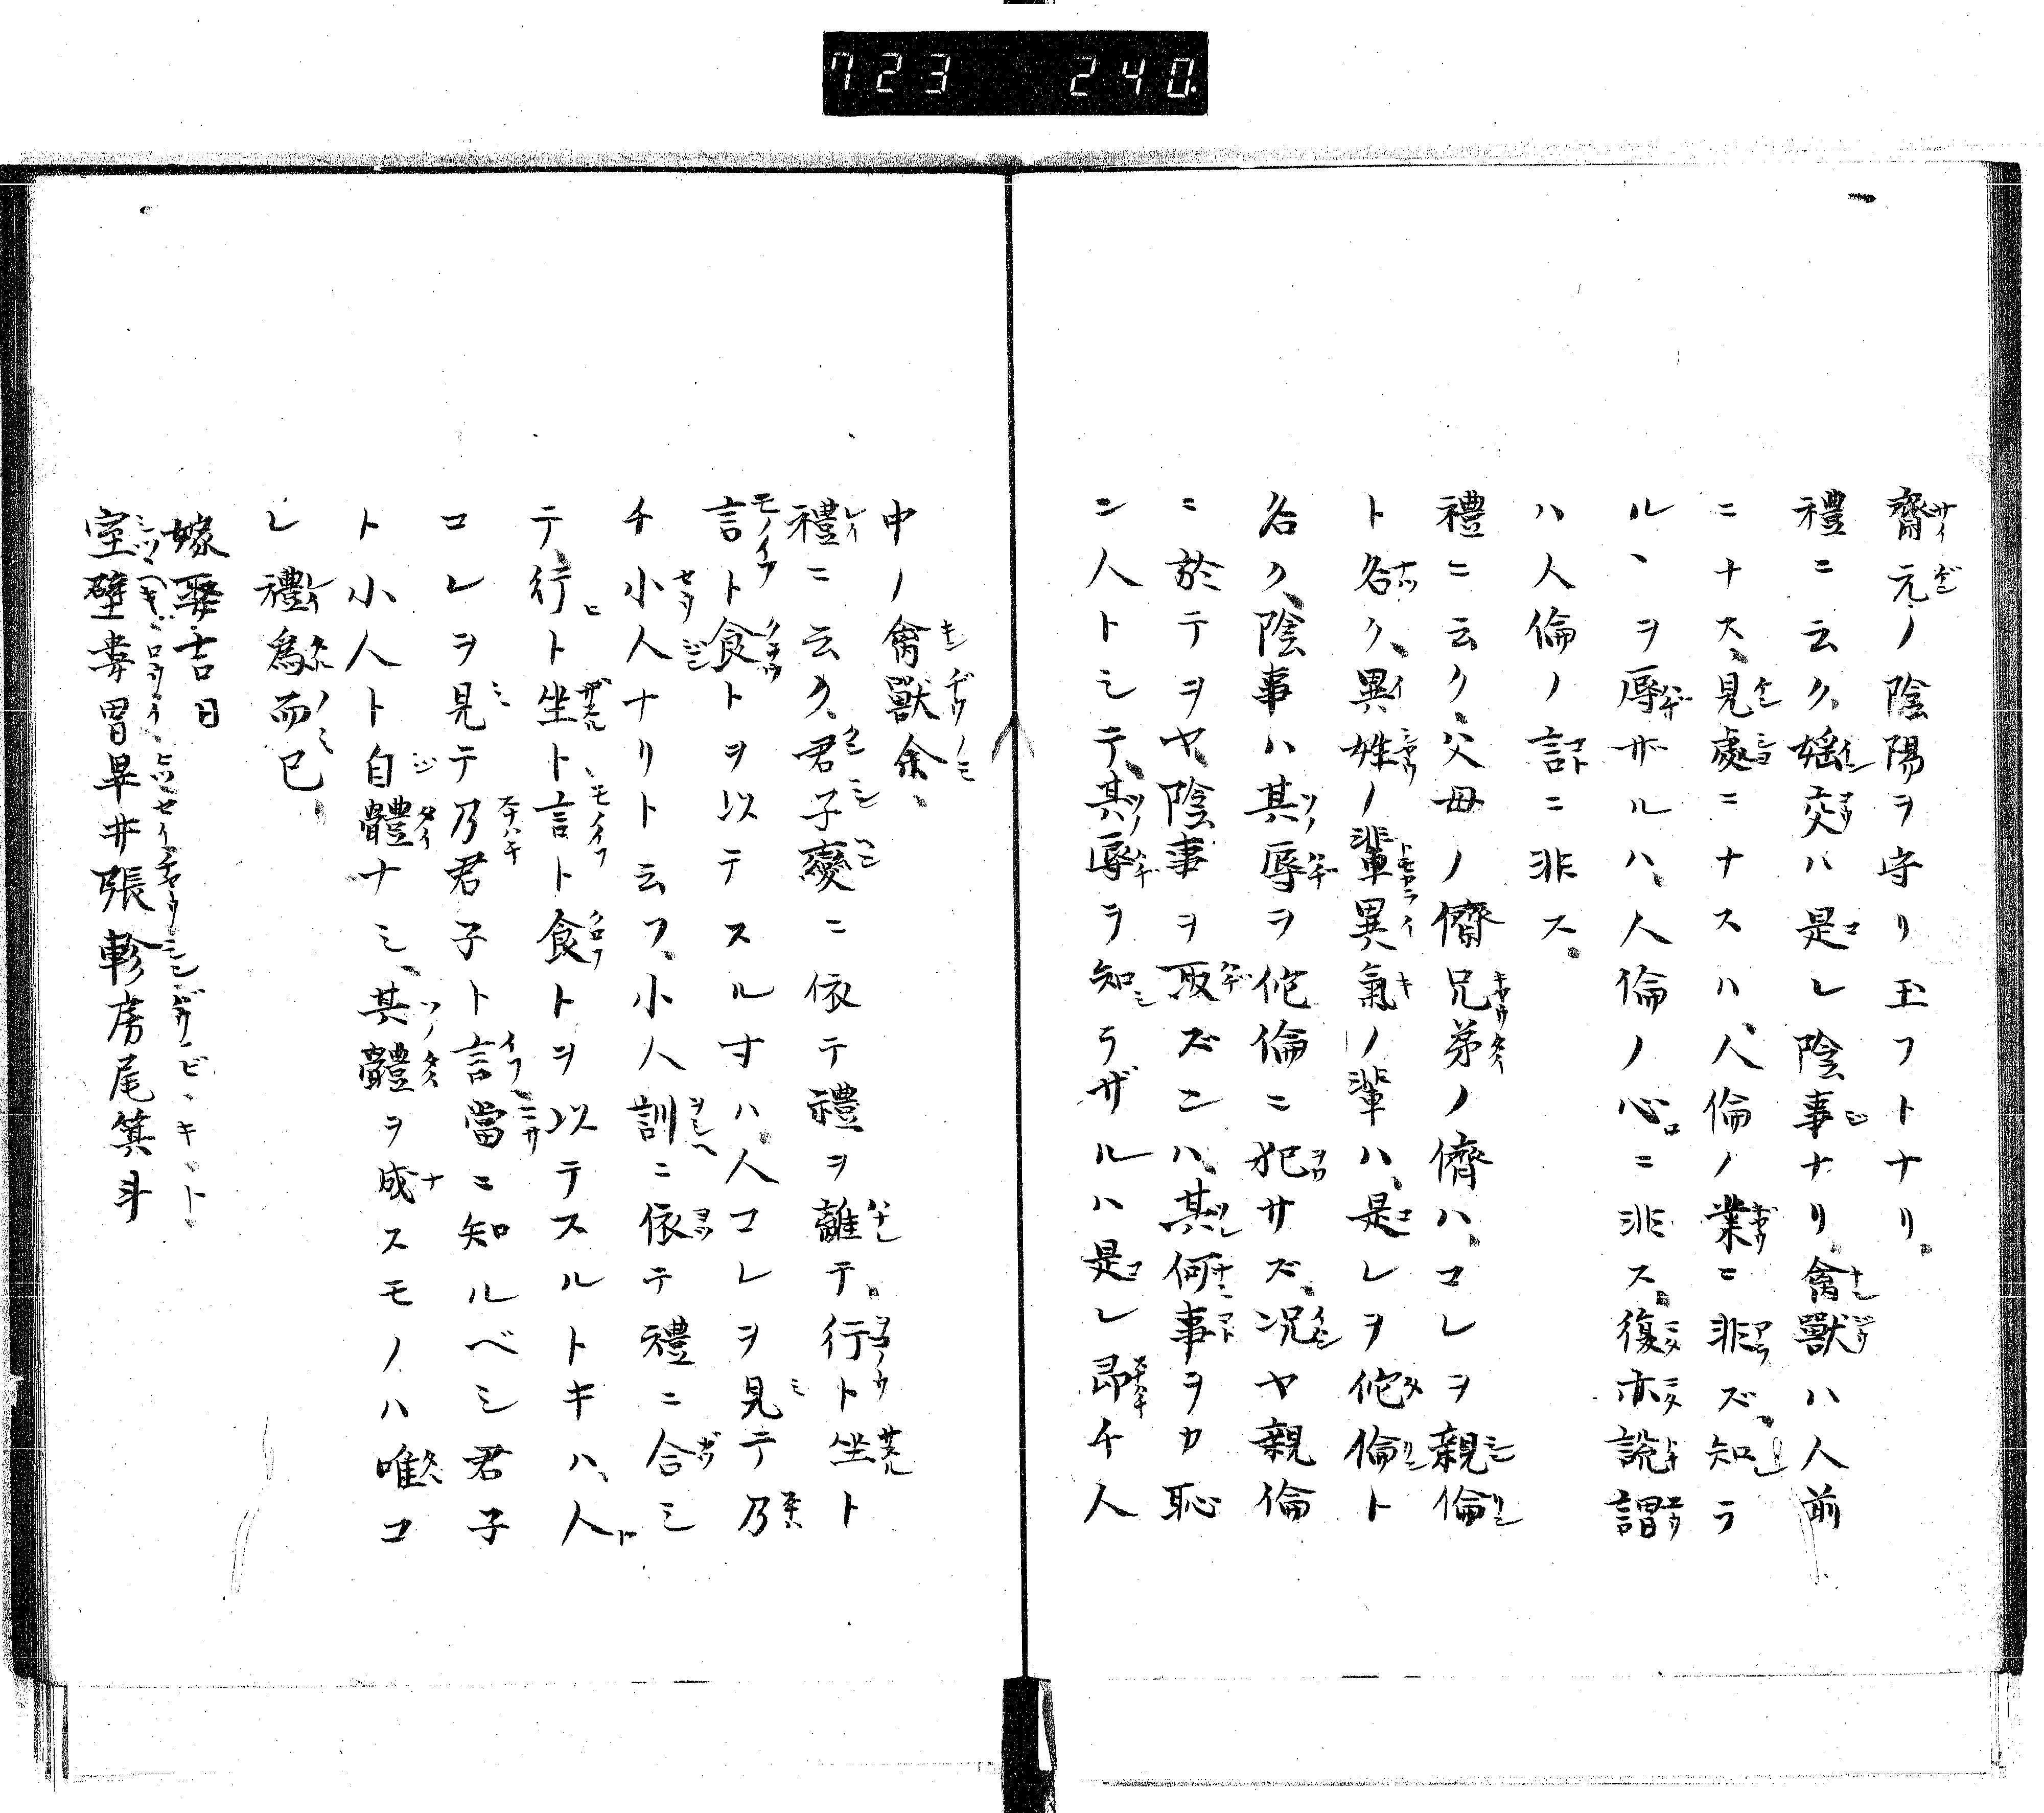 723 240
齋元ノ陰陽ヲ守リ玉フトナリ
禮ニ云ク、婬交ハ是レ陰事ナリ、禽獸ハ人前
ニナス、見處ニナスハ、人倫ノ業ニ非ズ、知ラ
ル丶ヲ辱ザルハ、人倫ノ心ニ非ス、復亦説謂
ハ人倫ノ言ニ非ス、
禮ニ云ク、父母ノ儕兄弟ノ儕ハ、コレヲ親倫
ト名ク、異姓ノ輩異氣ノ輩ハ、是レヲ佗倫ト
名ク、陰事ハ其辱ヲ佗倫ニ犯サズ、況ヤ親倫
ニ於テヲヤ、陰事ヲ取ズンハ、其何事ヲカ恥
ン人トシテ、其辱ヲ知ラザルハ是レ昂チ人
中ノ禽獸余、
禮ニ云ク、君子變ニ依テ禮ヲ離テ、行ト坐ト
言ト食トヲ以テスル寸ハ、人コレヲ見テ乃
チ小人ナリト云フ、小人訓ニ依テ禮ニ合シ
テ、行ト坐ト言ト食トヲ以テスルトキハ、人
コレヲ見テ乃君子ト言當ニ知ルベシ君子
ト小人ト自體ナシ、其體ヲ成スモノハ唯コ
レ禮爲而已、
嫁娶吉日
室壁婁胃畢井張軫房尾箕斗